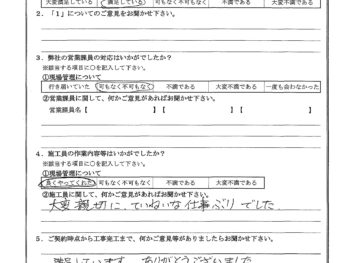 大変満足している 満足している 可もなく不可もなく 不満である 大変不満である
2．「1」についてのご意見をお聞かせ下さい。
3．弊社の営業課員の対応はいかがでしたか？
※該当する項目に○を記入して下さい。
①現場管理について
行き届いていた 可もなく不可もなく 不満である 大変不満である 一度も会わなかった
②営業課員に関して、何かご意見があればお聞かせ下さい。
営業課員名【 】【 】【 】
4．施工員の作業内容等はいかがでしたか？
※該当する項目に○を記入して下さい。
①現場管理について
良くやってくれた 可もなく不可もなく 不満である 大変不満である
②施工員に関して、何かご意見があればお聞かせ下さい。
大変親切に、ていねいな仕事ぶりでした。
5．ご契約時点から工事完工まで、何かご意見等がありましたらお聞かせ下さい。
満足しています。ありがとうございました